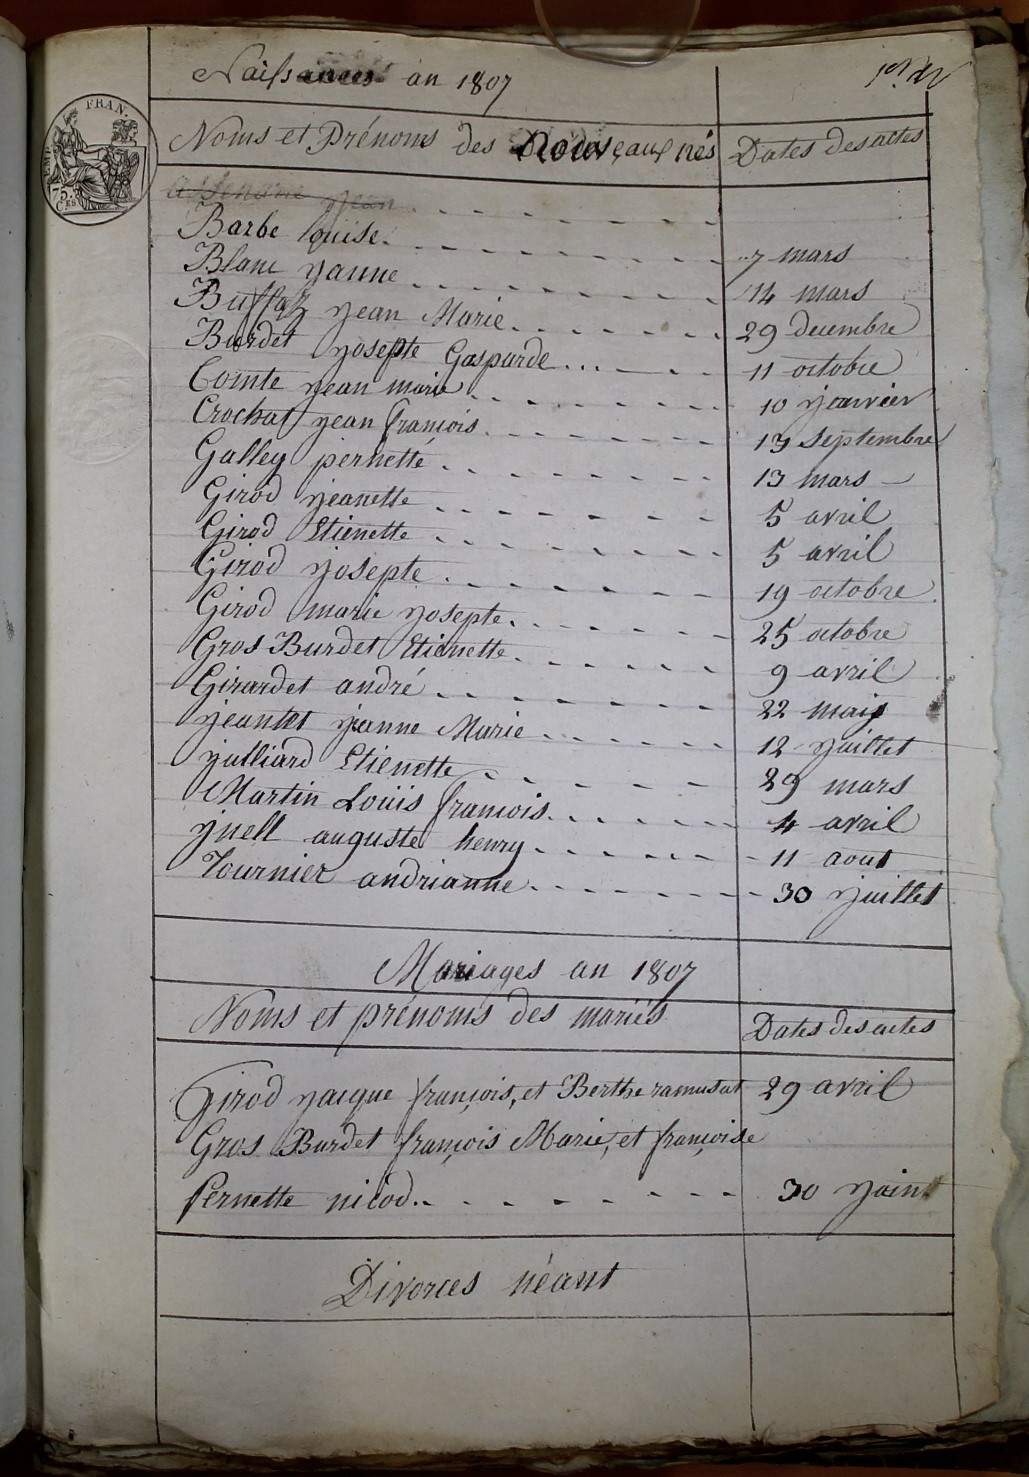 Naissances an 1807
FRAN.
75.
Noms et Prénoms des Nouveaux nés Dates des actes
Jean
Barbe louise 7 mars
Blanc Jeanne 14 mars
Buffaz Jean Marie 29 decembre
Burdet Josepte Gasparde 11 octobre
Comte Jean marie 10 Janvier
Crochat Jean françois 13 Septembre
Galley pernette 13 mars
Girod Jeanette 5 avril
Girod Etienette 5 avril
Girod Josepte 19 octobre
Girod marie Josepte 25 octobre
Gros-Burdet Etienette 9 avril
Girardet andré 22 mais
Jeantet Jeanne Marie 12 Juillet
Julliard Etienette 29 mars
Martin Louis françois 4 avril
auguste henry 11 aout
Tournier andrianne 30 Juillet
Mariages an 1807
Noms et prénoms des mariés Dates des actes
Girod Jacque françois, et Berthe ramusat 29 avril
Gros Burdet françois Marie, et françoise
Pernette nicod 30 Juin
Divorces néant